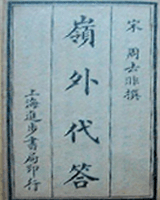 宋 周去非撰
嶺外代答
上海進步書局印行